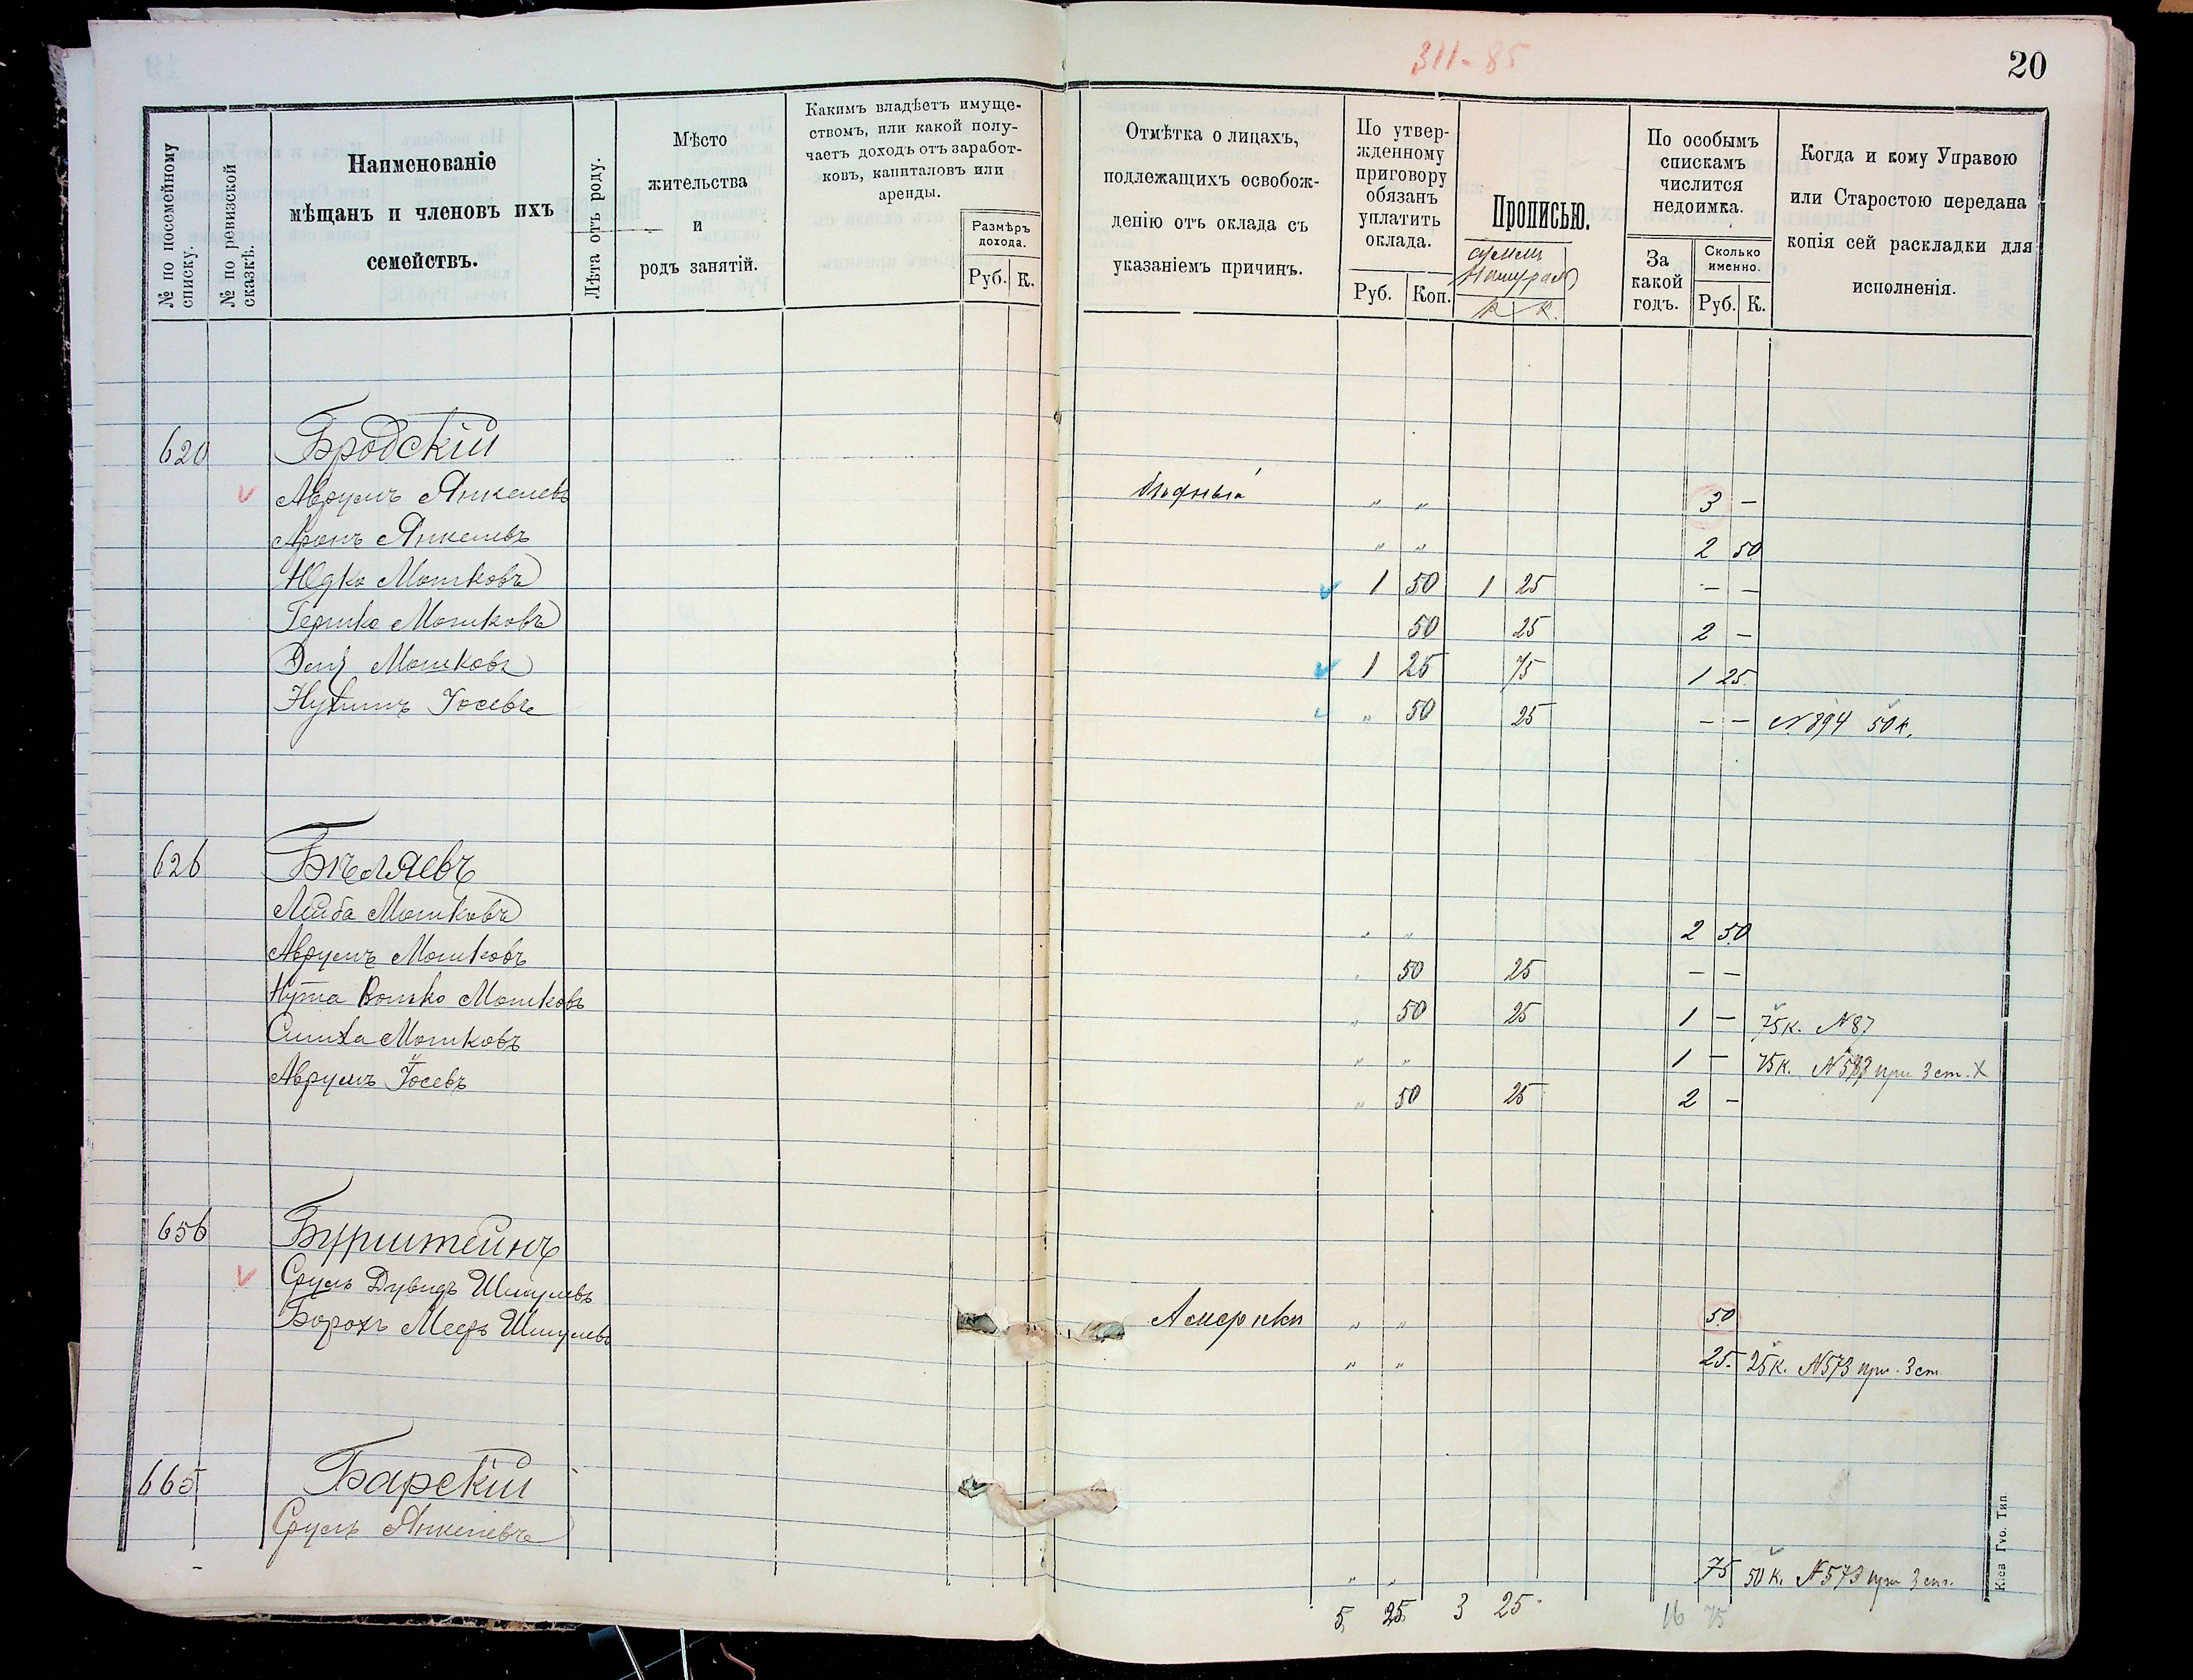 311-85
20
№ по посемейному списку.
№ по ревизской сказкѣ.
Наименованіе
мѣщанъ и членовъ ихъ
семействъ.
Лѣта отъ роду.
Мѣсто
жительства
и
родъ занятій.
Какимъ владѣетъ имуще-
ствомъ, или какой полу-
чаетъ доходъ отъ заработ-
ковъ, капиталовъ или
аренды.
Размѣръ
дохода.
Руб. К.
Отмѣтка о лицахъ,
подлежащихъ освобож-
денію отъ оклада съ
указаніемъ причинъ.
По утвер-
жденному
приговору
обязанъ
уплатить
оклада.
Руб. Коп.
Прописью.
По особымъ
спискамъ
числится
недоимка.
За
какой
годъ.
Сколько
именно.
Руб. К.
Когда и кому Управою
или Старостою передана
копія сей раскладки для
исполненія.
620 Бродскій
Аврумъ Янкелевъ бѣдный „ „ 3 —
Аронъ Янкелевъ „ „ 2 50
Юдко Мошковъ 1 50 1 25 — —
Гершко Мошковъ 50 25 2 —
Мошковъ 1 25 75 1 25
Нухимъ Іосевъ „ 50 25 — — N 894 50 к.
626 Бѣляевъ
Лейба Мошковъ „ „ 2 50
Аврумъ Мошковъ „ 50 25 — —
Нута Волько Мошковъ „ 50 25 1 — 75 к. N 87
Симха Мошковъ „ „ 1 — 75 к. при 3 ст. X
Аврумъ Іосевъ „ 50 25 2 —
656 Бурштейнъ
Сруль Дувидъ Шмулевъ Америки „ „ 50
Борохъ Мееръ Шмулевъ „ „ 25. 25 к. N 573 при 3 ст.
665 Барскій
Сруль Янкелевъ „ „ 75 50 к. N 573 при 3 ст.
5 25 3 25 16 75
Кіев Губ. Тип.